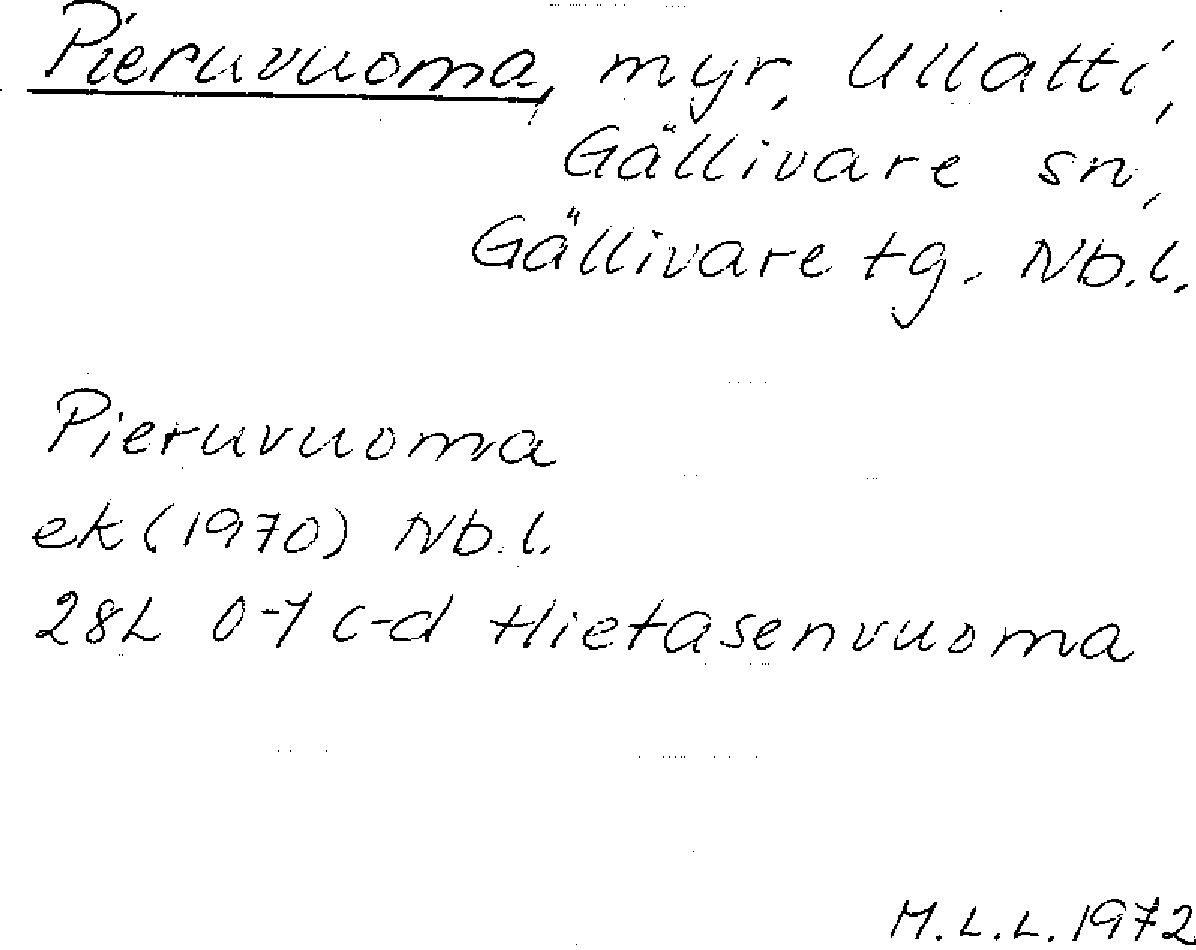 Pieruvuoma, myr, Ullatti,
Gällivare sn,
Gällivare tg. Nb.l.
Pieruvuoma
ek (1970) Nb.l.
28L 0-1 c-d Hietasenvuoma
M.L.L. 1972